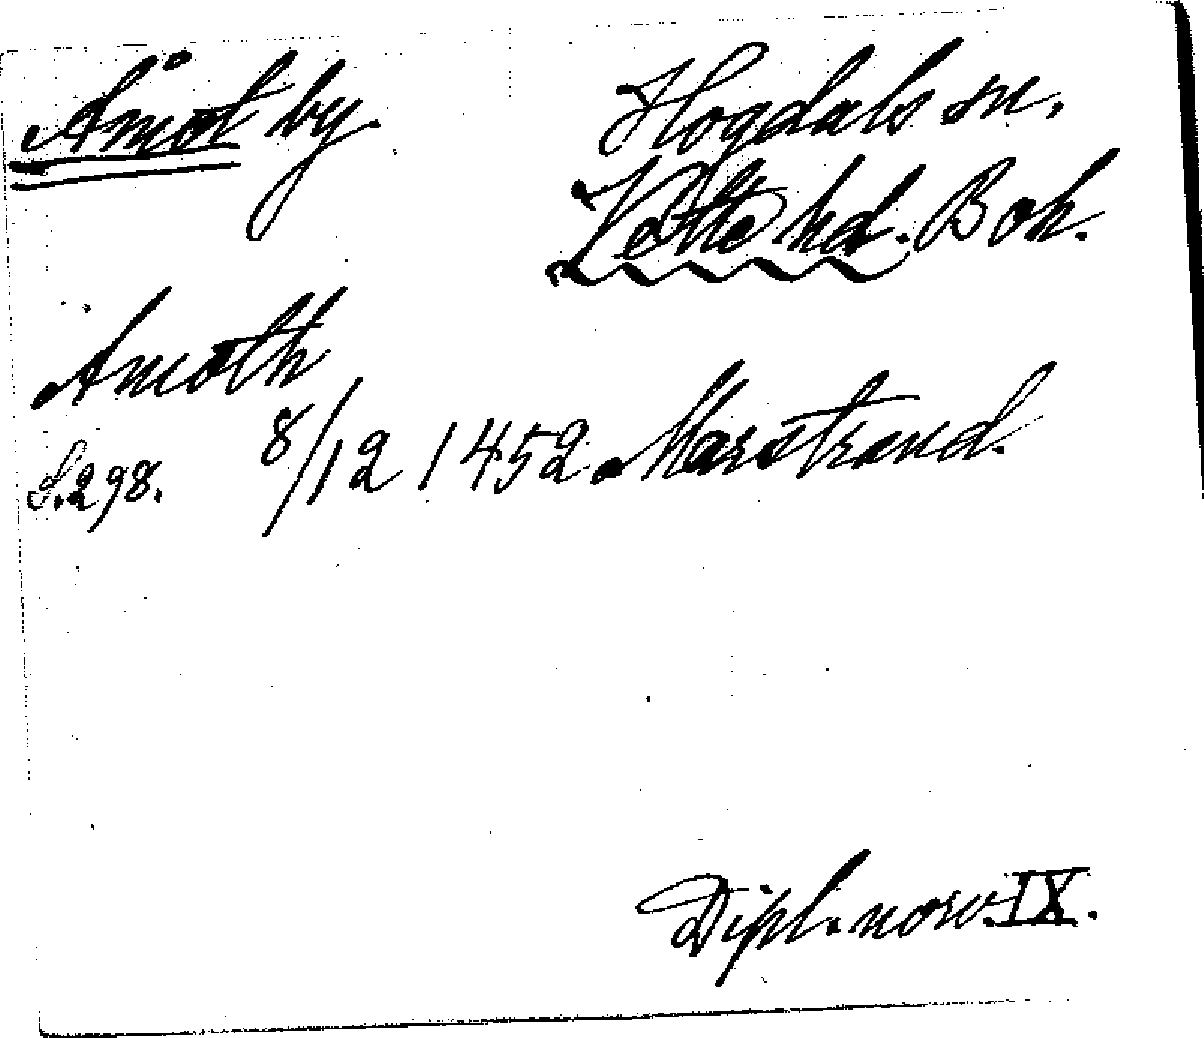 Åmot by. Hogdals sn.
Vette hd. Boh.
Amoth
S. 298. 8/12 1452 Marstrand.
Dipl. norv. IX.